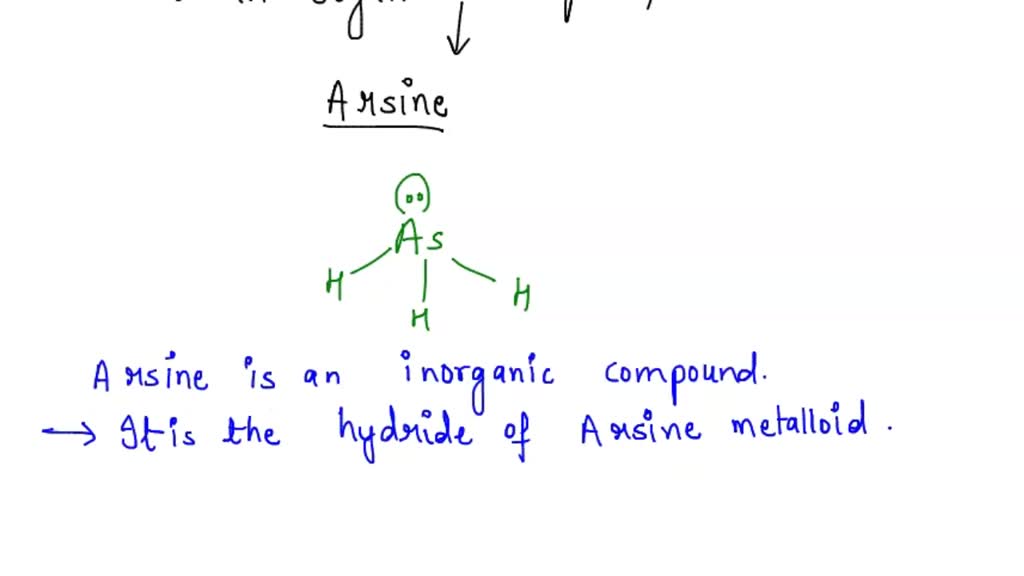 Arsine
As
H
H
H
Arsine is an inorganic compound.
→ It is the hydride of Arsine metalloid.